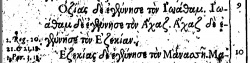 Ὀζίας δὲ ἐγέννησε τὸν Ἰωάθαμ. Ἰω-
άθαμ δὲ ἐγέννησε τὸν Ἄχαζ. Ἄχαζ δὲ 9
ἐγέννησε τὸν Ἐζεκίαν.
Ἐζεκίας δὲ ἐγέννησε τὸν Μανασσῆ. Μα- 10
2. Reg. 20.
21. & 21. 18.